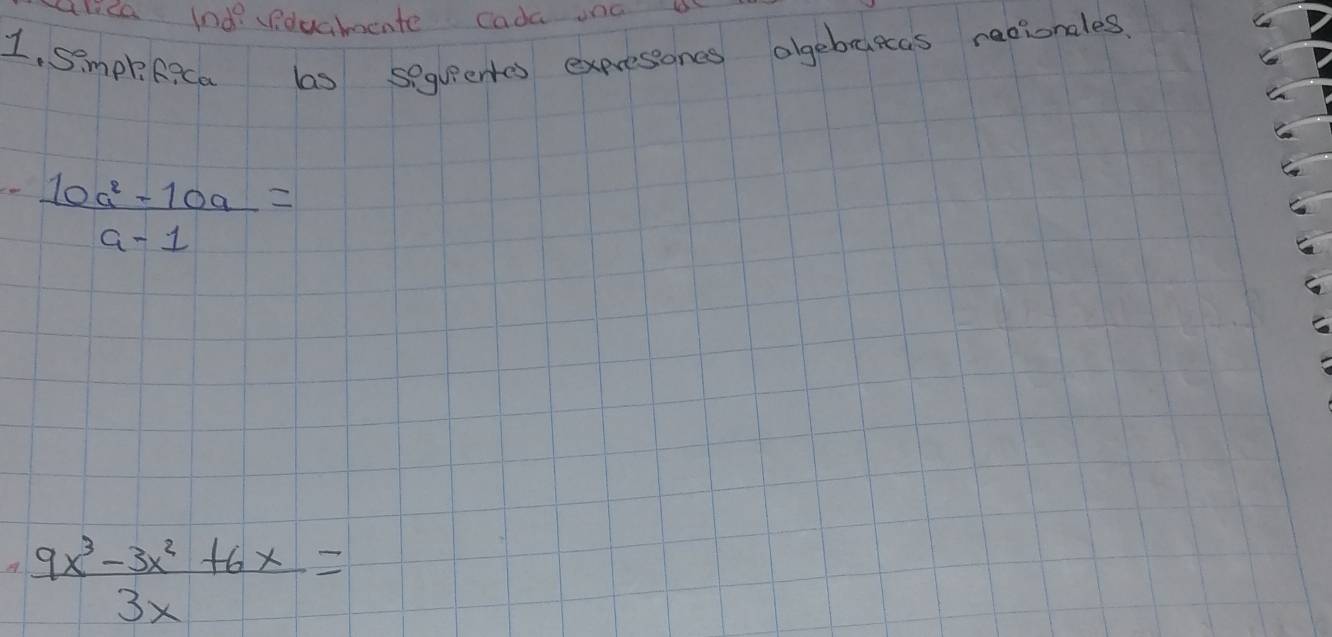 cada una
1. Simplifica las siguientes expresiones algebraicas racionales.
10a² - 10a =
a - 1
9x³ - 3x² + 6x =
3x